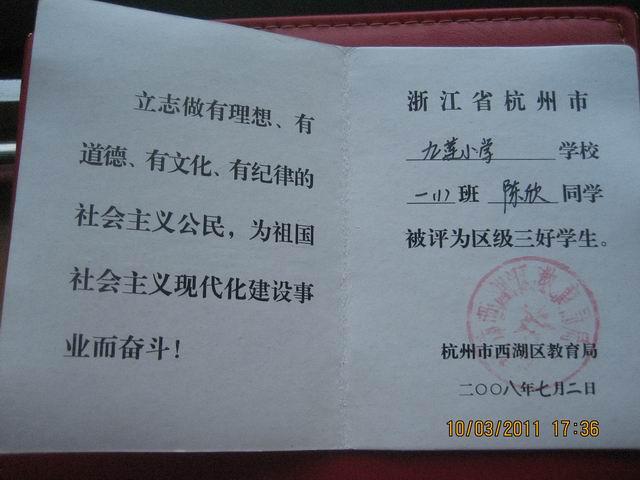 立志做有理想、有
道德、有文化、有纪律的
社会主义公民，为祖国
社会主义现代化建设事
业而奋斗！
浙江省杭州市
九莲小学 学校
一(1)班 陈欣 同学
被评为区级三好学生。
杭州市西湖区教育局
二〇〇八年七月二日
10/03/2011 17:36